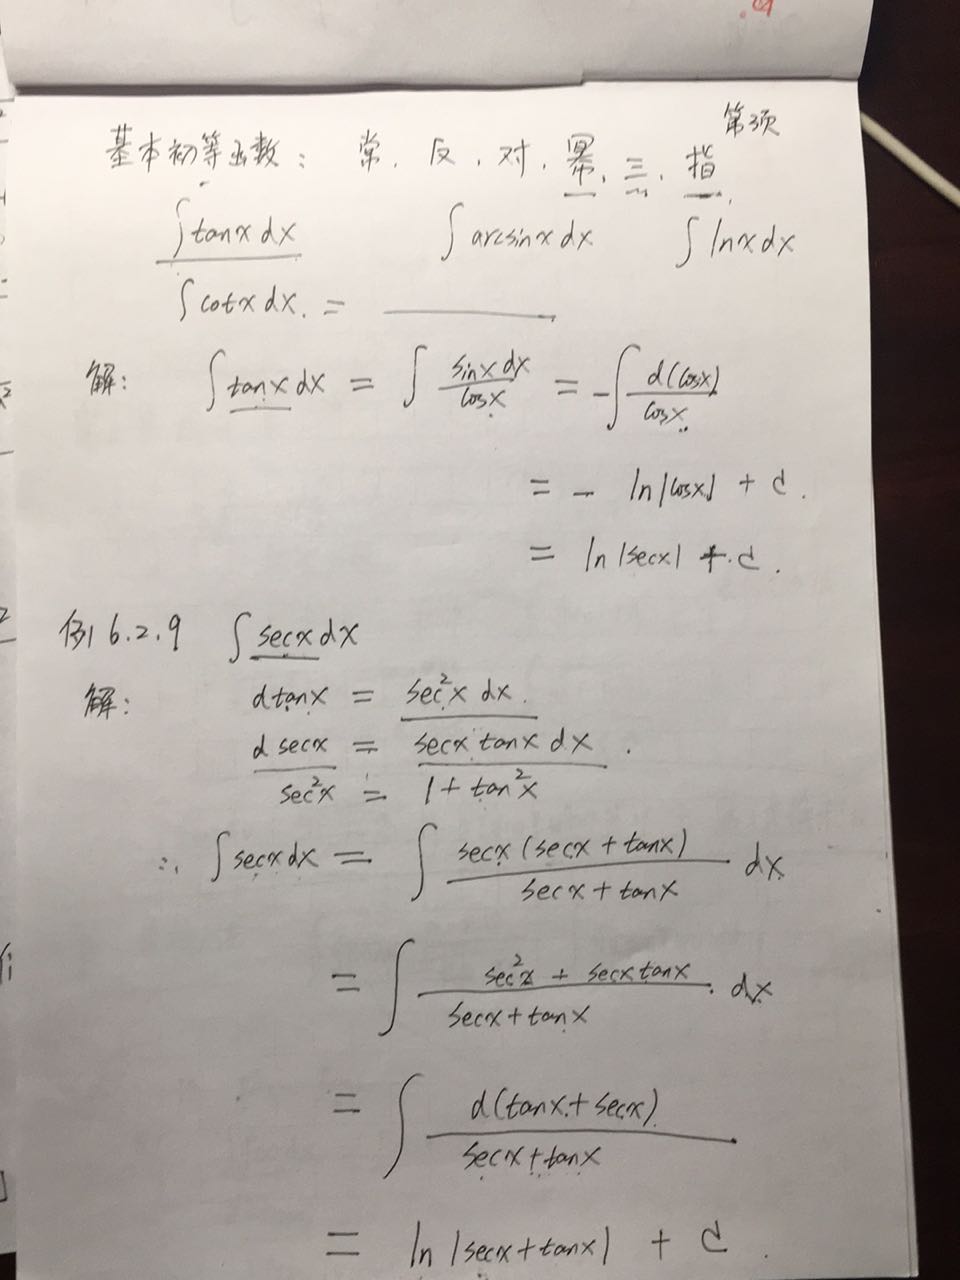 第 项
基本初等函数: 常. 反. 对. 幂. 三. 指
∫tanx dx ∫arcsinx dx ∫lnx dx
∫cotx dx. = ______
解: ∫tanx dx = ∫ sinx dx / cosx = -∫ d(cosx) / cosx
= - ln|cosx| + c.
= ln|secx| + c.
例 6.2.9 ∫secx dx
解: dtanx = sec²x dx.
d secx = secx tanx dx.
sec²x = 1 + tan²x
∴ ∫secx dx = ∫ secx (secx + tanx) / secx + tanx dx
= ∫ sec²x + secx tanx / secx + tanx dx
= ∫ d(tanx + secx) / secx + tanx
= ln |secx + tanx| + c.